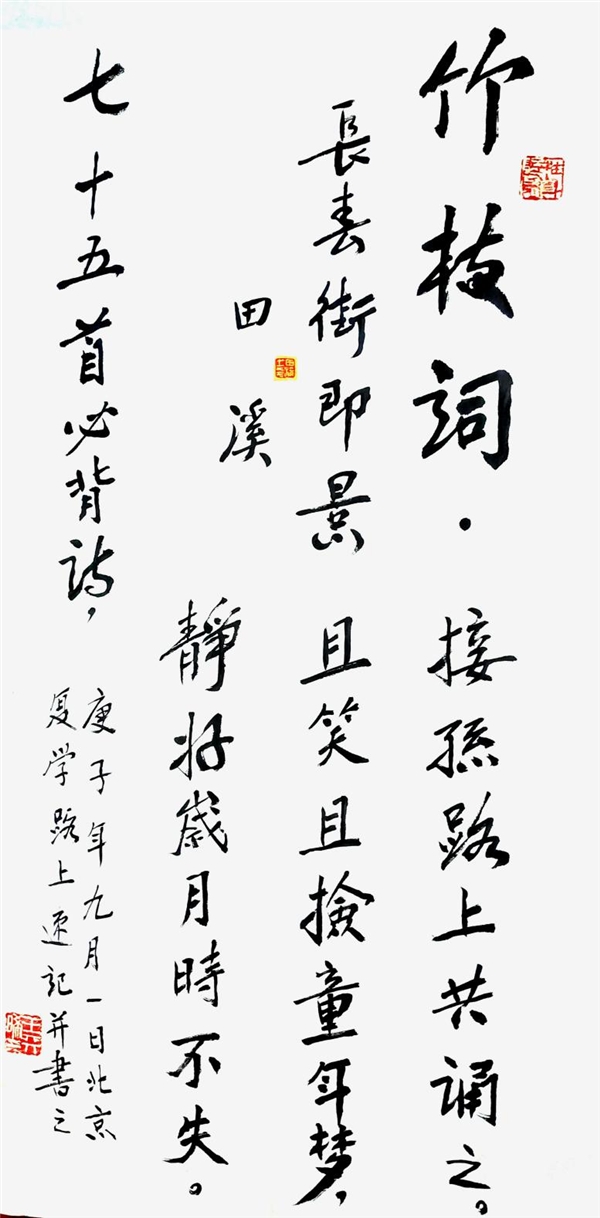 竹枝詞·
長春街即景
田溪
七十五首必背诗，
接孫路上共誦之。
且笑且撿童年梦，
靜好歲月時不失。
庚子年九月一日北京
复学路上速記并書之